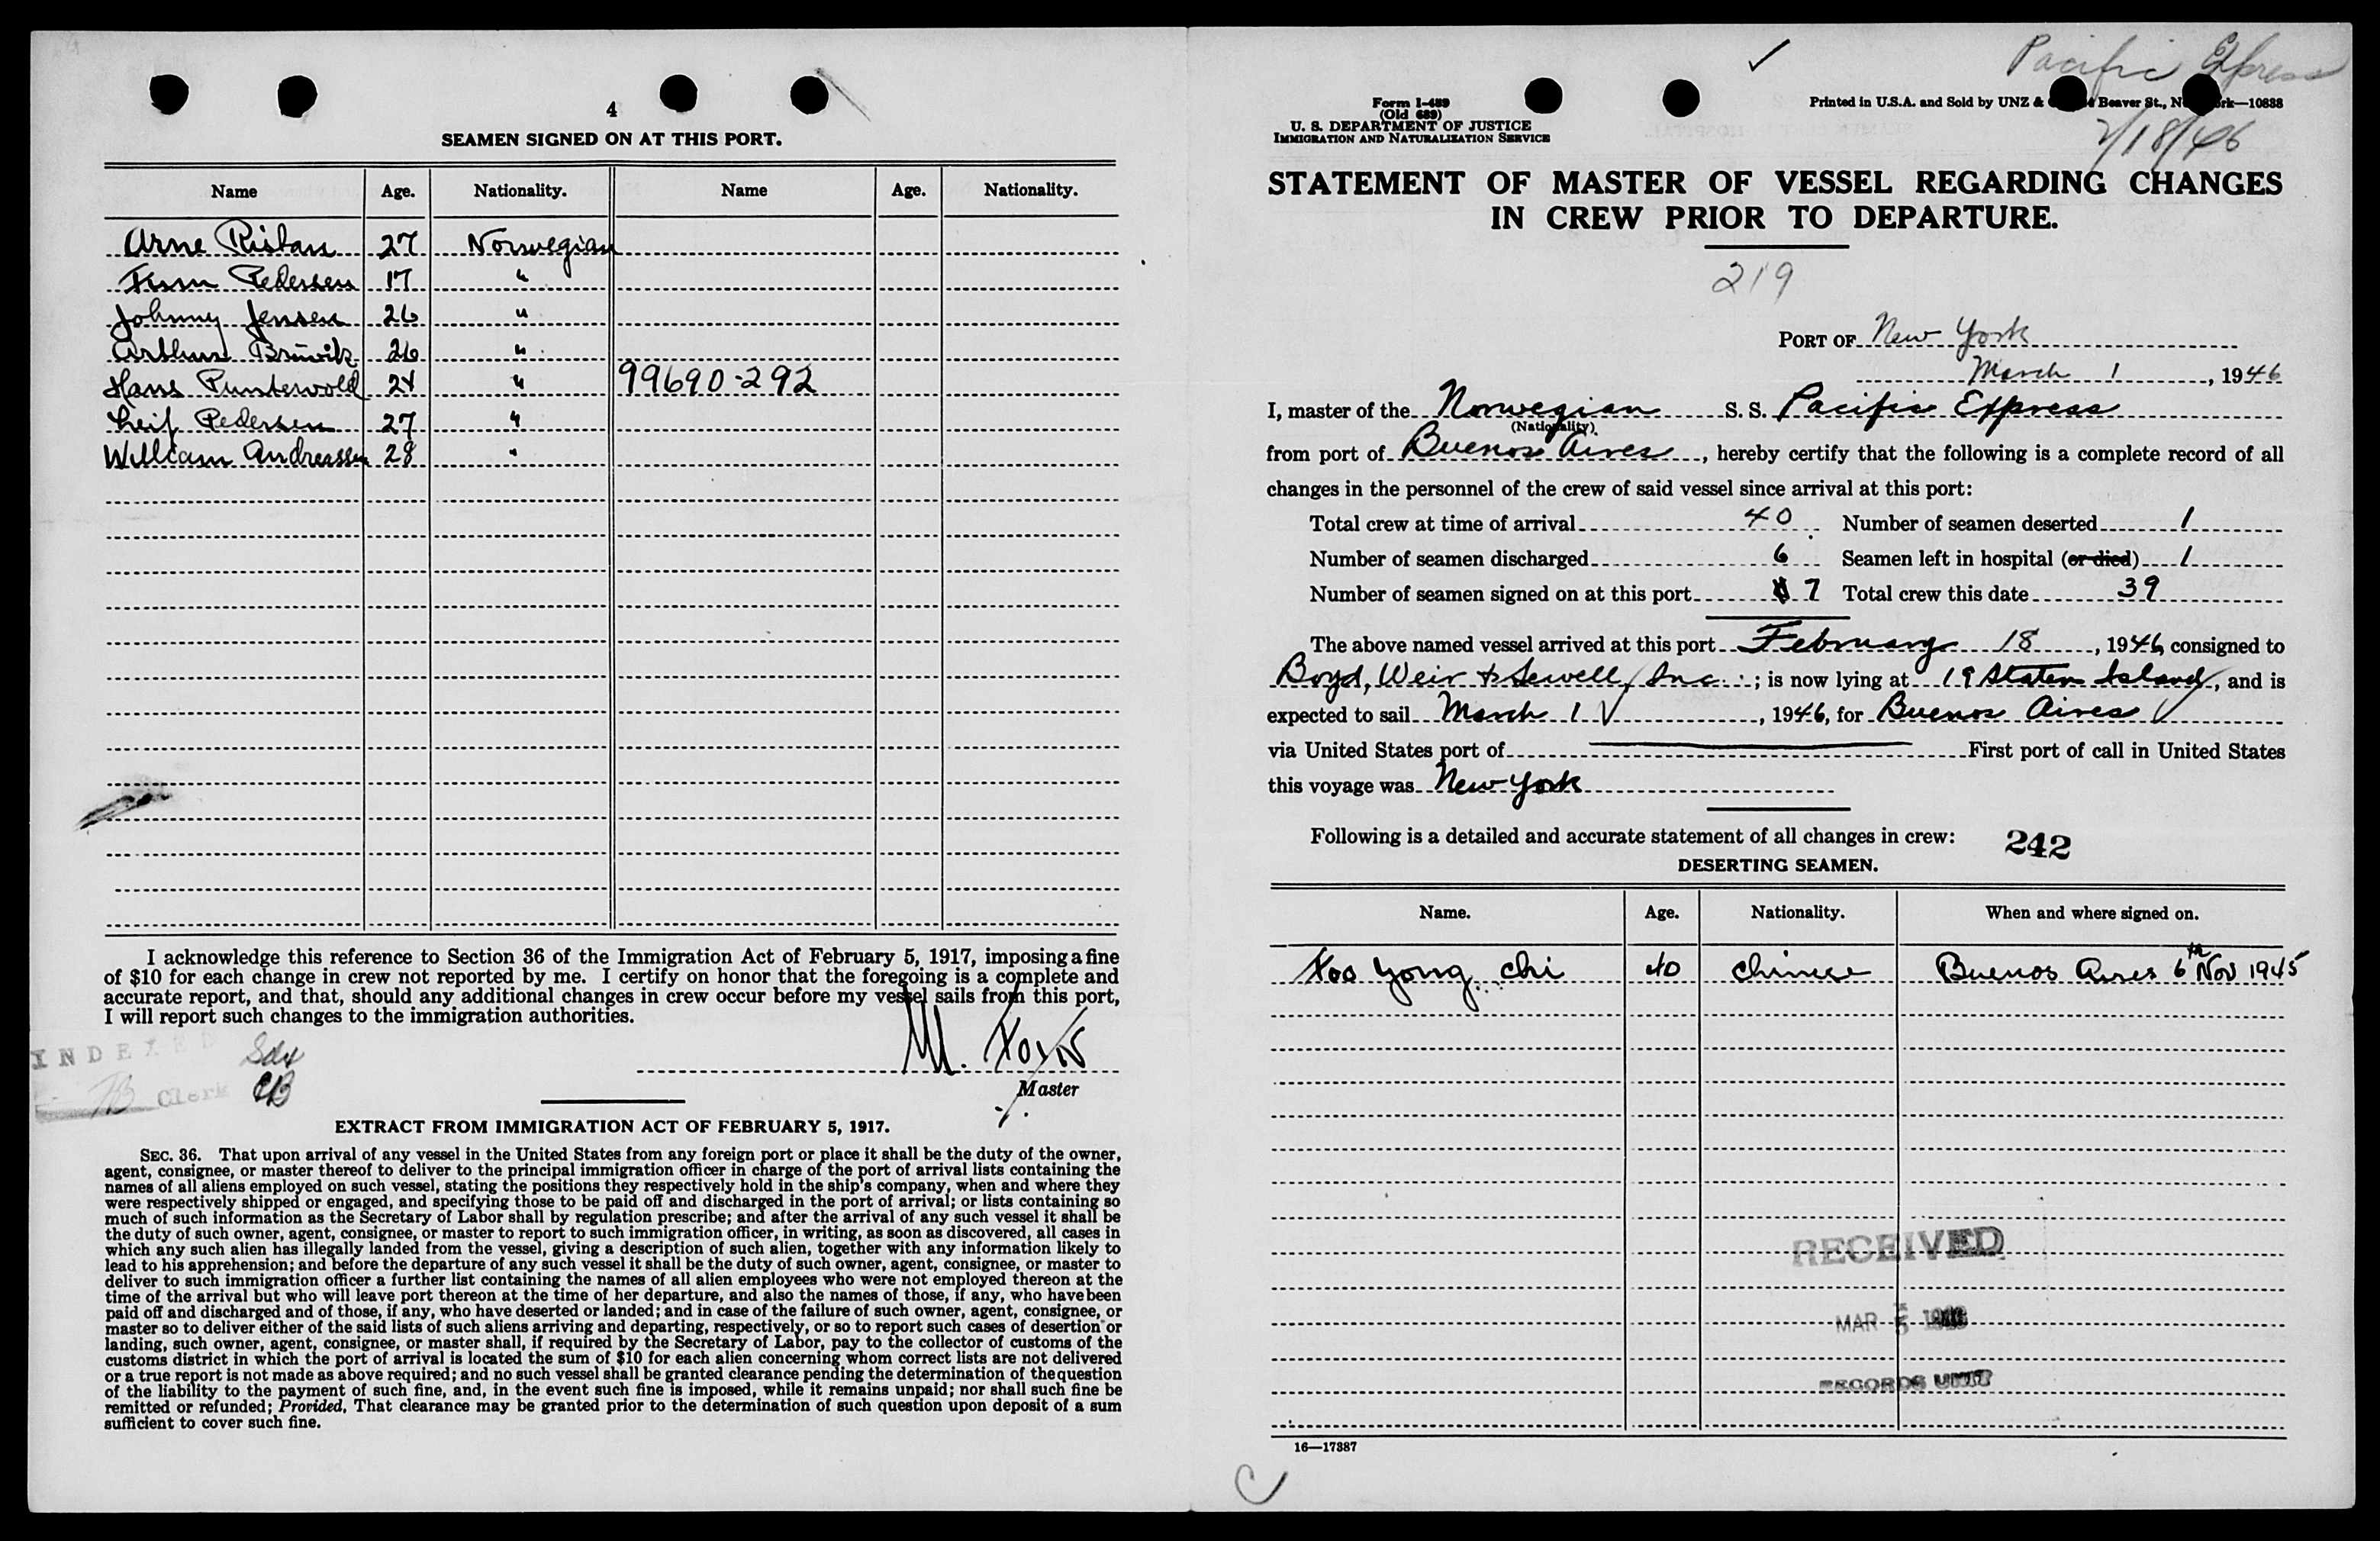 4
SEAMEN SIGNED ON AT THIS PORT.
Name Age. Nationality. Name Age. Nationality.
Arne 27 Norwegian
Pedersen 17 "
Johnny Jensen 26 "
26 "
Hans 24 " 99690-292
Leif Pedersen 27 "
William Andreassen 28 "
I acknowledge this reference to Section 36 of the Immigration Act of February 5, 1917, imposing a fine
of $10 for each change in crew not reported by me. I certify on honor that the foregoing is a complete and
accurate report, and that, should any additional changes in crew occur before my vessel sails from this port,
I will report such changes to the immigration authorities.
INDEXED
Clerk
M.
Master
EXTRACT FROM IMMIGRATION ACT OF FEBRUARY 5, 1917.
SEC. 36. That upon arrival of any vessel in the United States from any foreign port or place it shall be the duty of the owner,
agent, consignee, or master thereof to deliver to the principal immigration officer in charge of the port of arrival lists containing the
names of all aliens employed on such vessel, stating the positions they respectively hold in the ship's company, when and where they
were respectively shipped or engaged, and specifying those to be paid off and discharged in the port of arrival; or lists containing so
much of such information as the Secretary of Labor shall by regulation prescribe; and after the arrival of any such vessel it shall be
the duty of such owner, agent, consignee, or master to report to such immigration officer, in writing, as soon as discovered, all cases in
which any such alien has illegally landed from the vessel, giving a description of such alien, together with any information likely to
lead to his apprehension; and before the departure of any such vessel it shall be the duty of such owner, agent, consignee, or master to
deliver to such immigration officer a further list containing the names of all alien employees who were not employed thereon at the
time of the arrival but who will leave port thereon at the time of her departure, and also the names of those, if any, who have been
paid off and discharged and of those, if any, who have deserted or landed; and in case of the failure of such owner, agent, consignee, or
master so to deliver either of the said lists of such aliens arriving and departing, respectively, or so to report such cases of desertion or
landing, such owner, agent, consignee, or master shall, if required by the Secretary of Labor, pay to the collector of customs of the
customs district in which the port of arrival is located the sum of $10 for each alien concerning whom correct lists are not delivered
or a true report is not made as above required; and no such vessel shall be granted clearance pending the determination of the question
of the liability to the payment of such fine, and, in the event such fine is imposed, while it remains unpaid; nor shall such fine be
remitted or refunded; Provided, That clearance may be granted prior to the determination of such question upon deposit of a sum
sufficient to cover such fine.
Pacific Express
2/18/46
Form I-489
(Old 689)
U. S. DEPARTMENT OF JUSTICE
IMMIGRATION AND NATURALIZATION SERVICE
Printed in U.S.A. and Sold by UNZ & Beaver St., —10838
STATEMENT OF MASTER OF VESSEL REGARDING CHANGES
IN CREW PRIOR TO DEPARTURE.
219
PORT OF New York
March 1, 1946
I, master of the Norwegian S. S. Pacific Express
(Nationality)
from port of Buenos Aires, hereby certify that the following is a complete record of all
changes in the personnel of the crew of said vessel since arrival at this port:
Total crew at time of arrival 40 Number of seamen deserted 1
Number of seamen discharged 6 Seamen left in hospital (or died) 1
Number of seamen signed on at this port 7 Total crew this date 39
The above named vessel arrived at this port February 18, 1946, consigned to
Boyd, Weir & Sewell, Inc.; is now lying at 19 Staten Island, and is
expected to sail March 1, 1946, for Buenos Aires
via United States port of First port of call in United States
this voyage was New York
Following is a detailed and accurate statement of all changes in crew: 242
DESERTING SEAMEN.
Name. Age. Nationality. When and where signed on.
Yong Chi 40 Chinese Buenos Aires 6th Nov 1945
RECEIVED
MAR 5 1946
RECORDS UNIT
16—17387